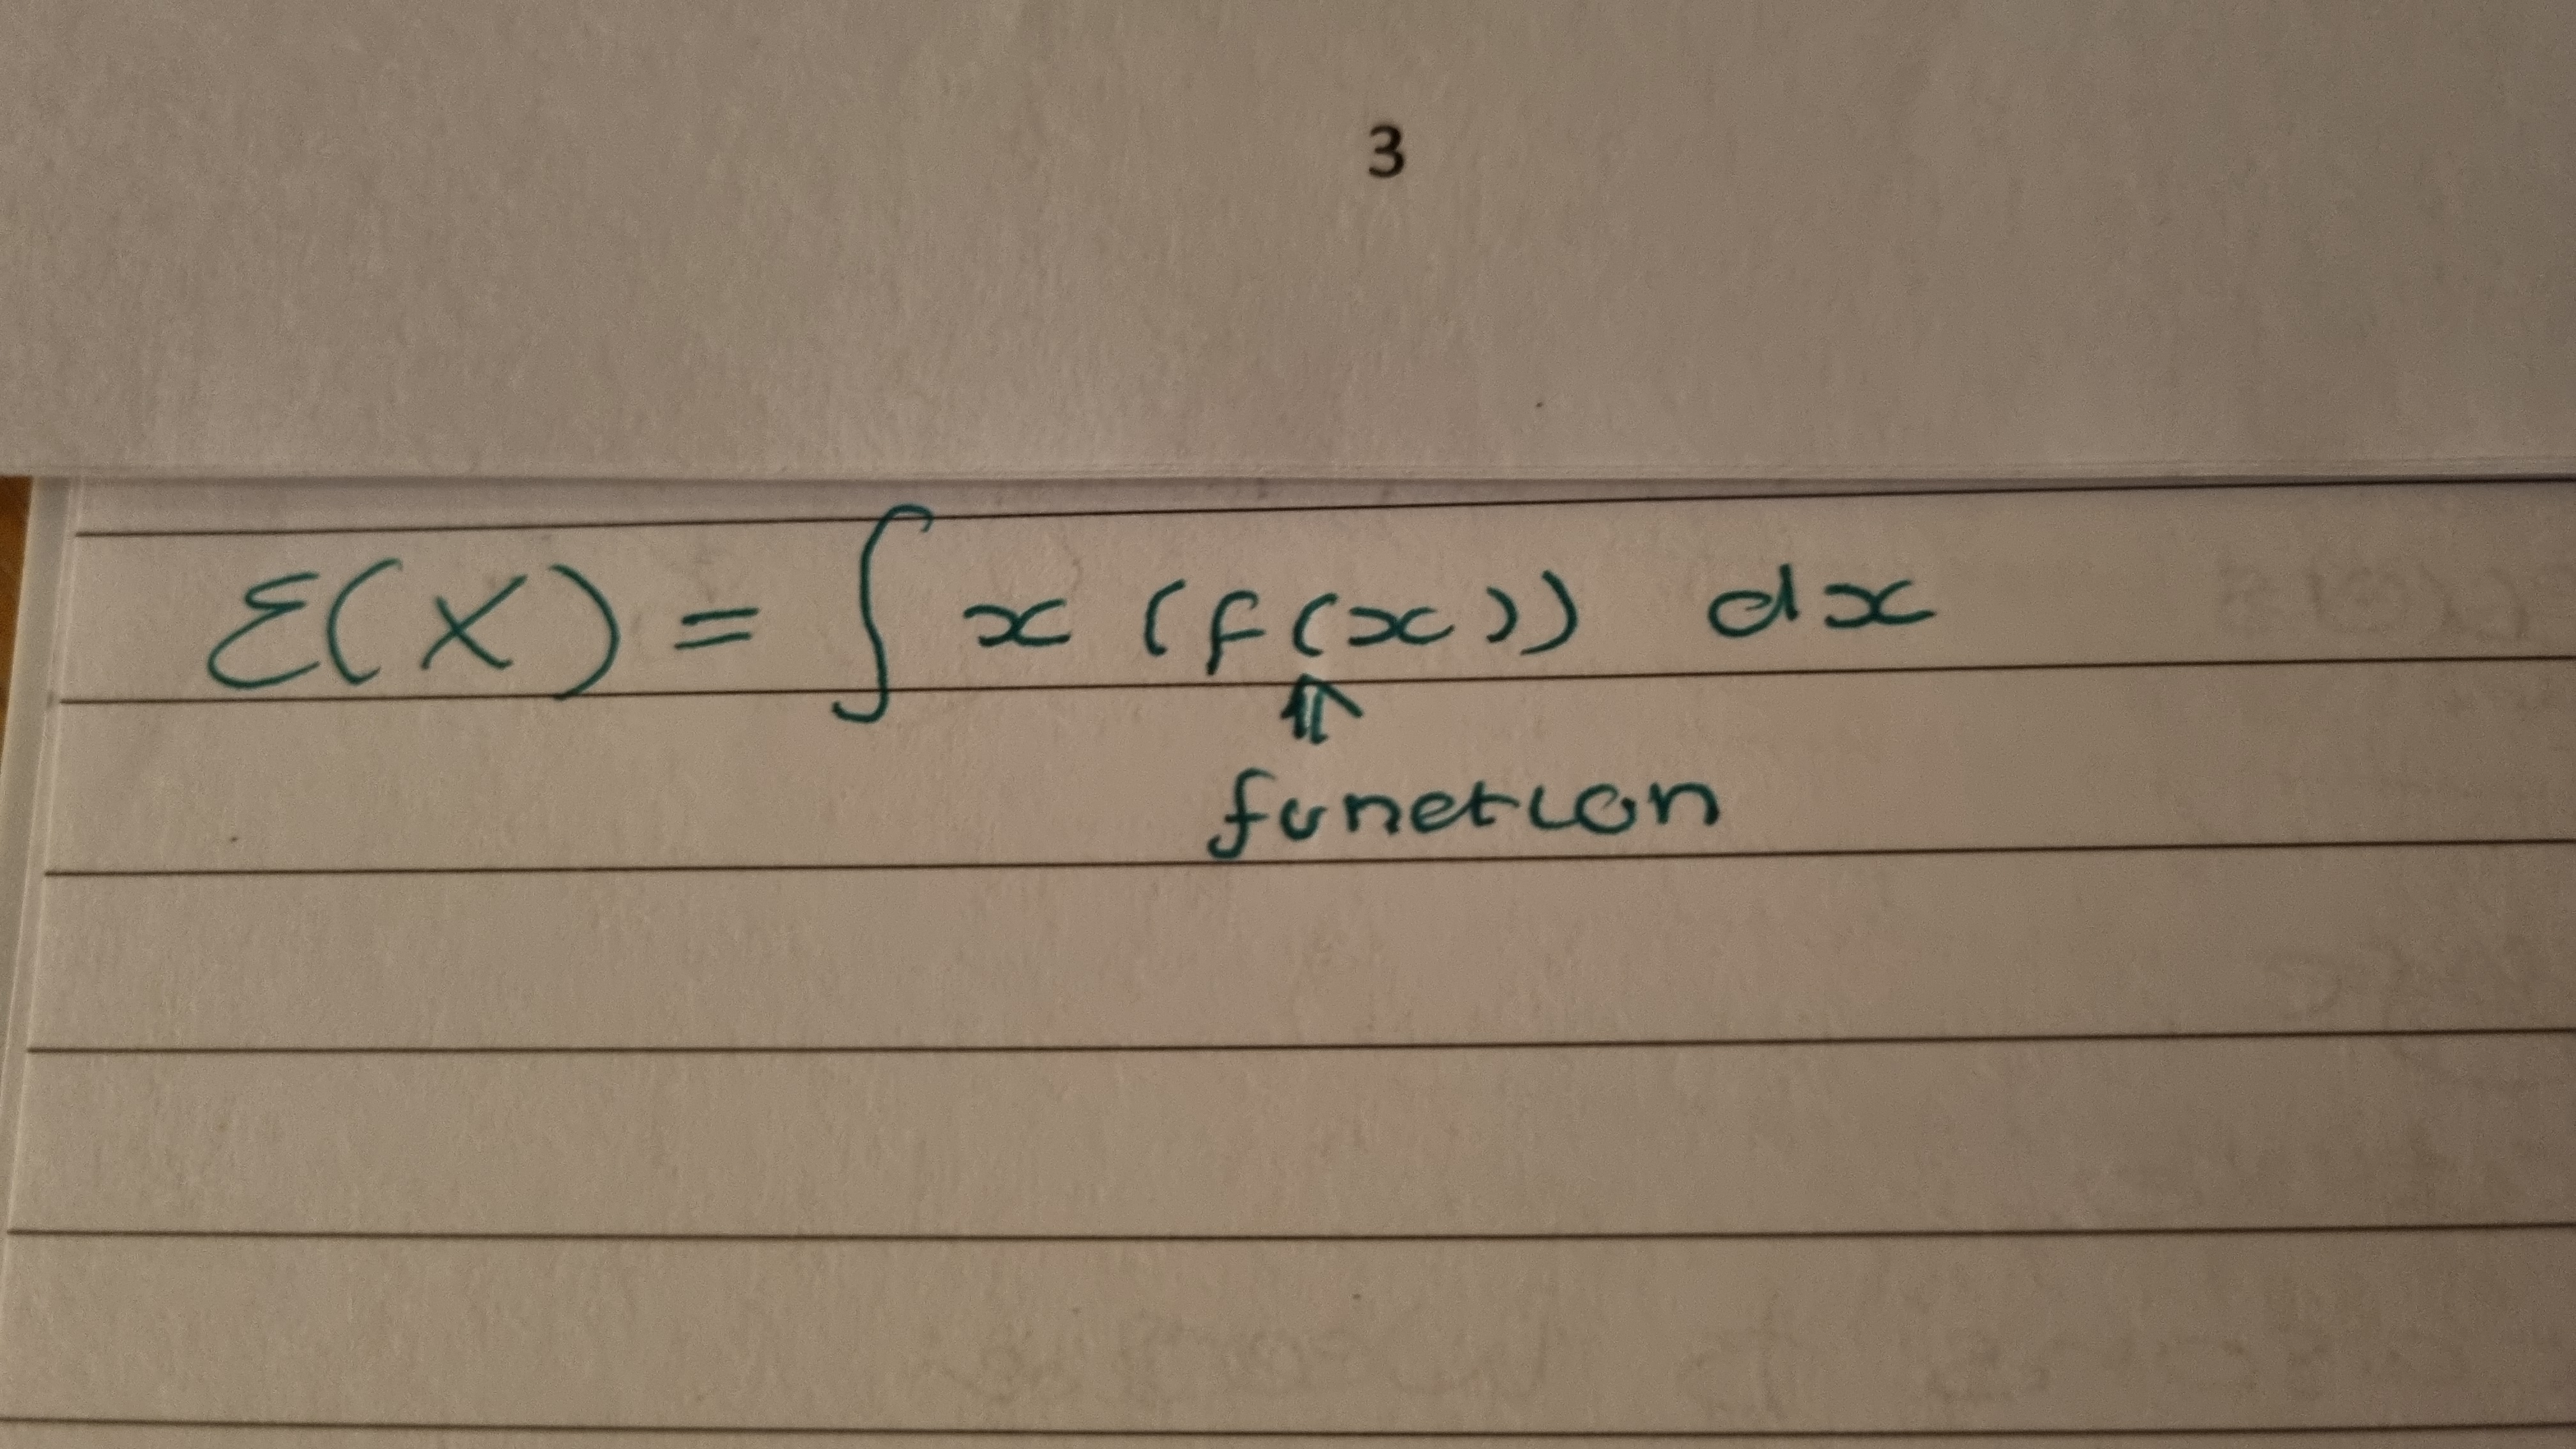 3
E(X) = ∫ x (f(x)) dx
⇑
function